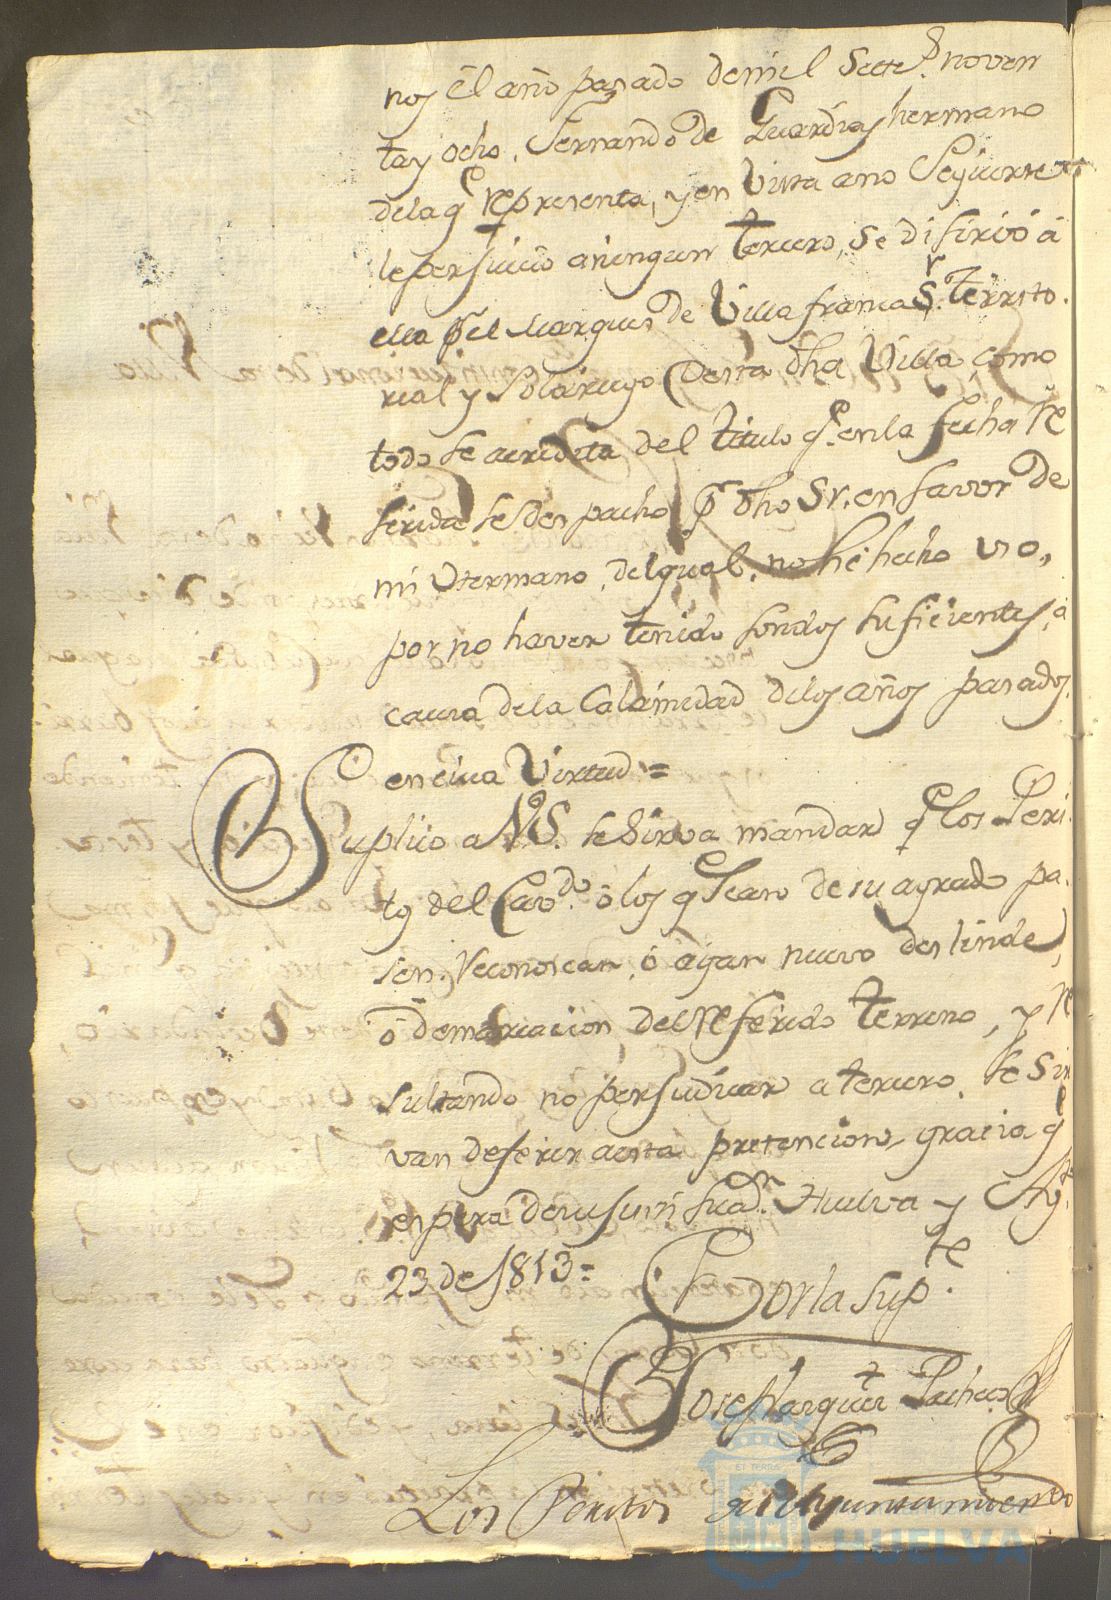 nos él año pasado demil Setes. noven
tay ocho, Fernando de Guardias hermano
dela qe representa, y en vista ano Seguirse
leperjuicio aningun tercero, se difirió á
ella pr el Marques de Villafranca Sr. territo.
rial y Solariego Desta dha Villa, como
todo se acredita del titulo qe. enla fecha re
ferida se despacho pr dho Sr. en favor de
mi Hermano, delqual, no hé hecho uso,
por no haver tenido fondos suficientes, á
causa dela Calamidad delos años pasados.
en cuia Virtud =
Suplico a V.S. se Sirva mandar qe los Peri.
tos del Cavdo. ó los qe Sean de su agrado pa.
sen. Reconoscan, ó agan nuevo deslinde,
ó demarcacion del referido terreno, y re
sultando no perjudicar a tercero, se Sir
van deferir aesta pretencion, gracia qe
espera de su Huelva y Agto.
23 de 1813 =
Por la Supte.
Jose Marquez Pacheco
Los Peritos del Ayuntamiento
ET TERRA
HUELVA